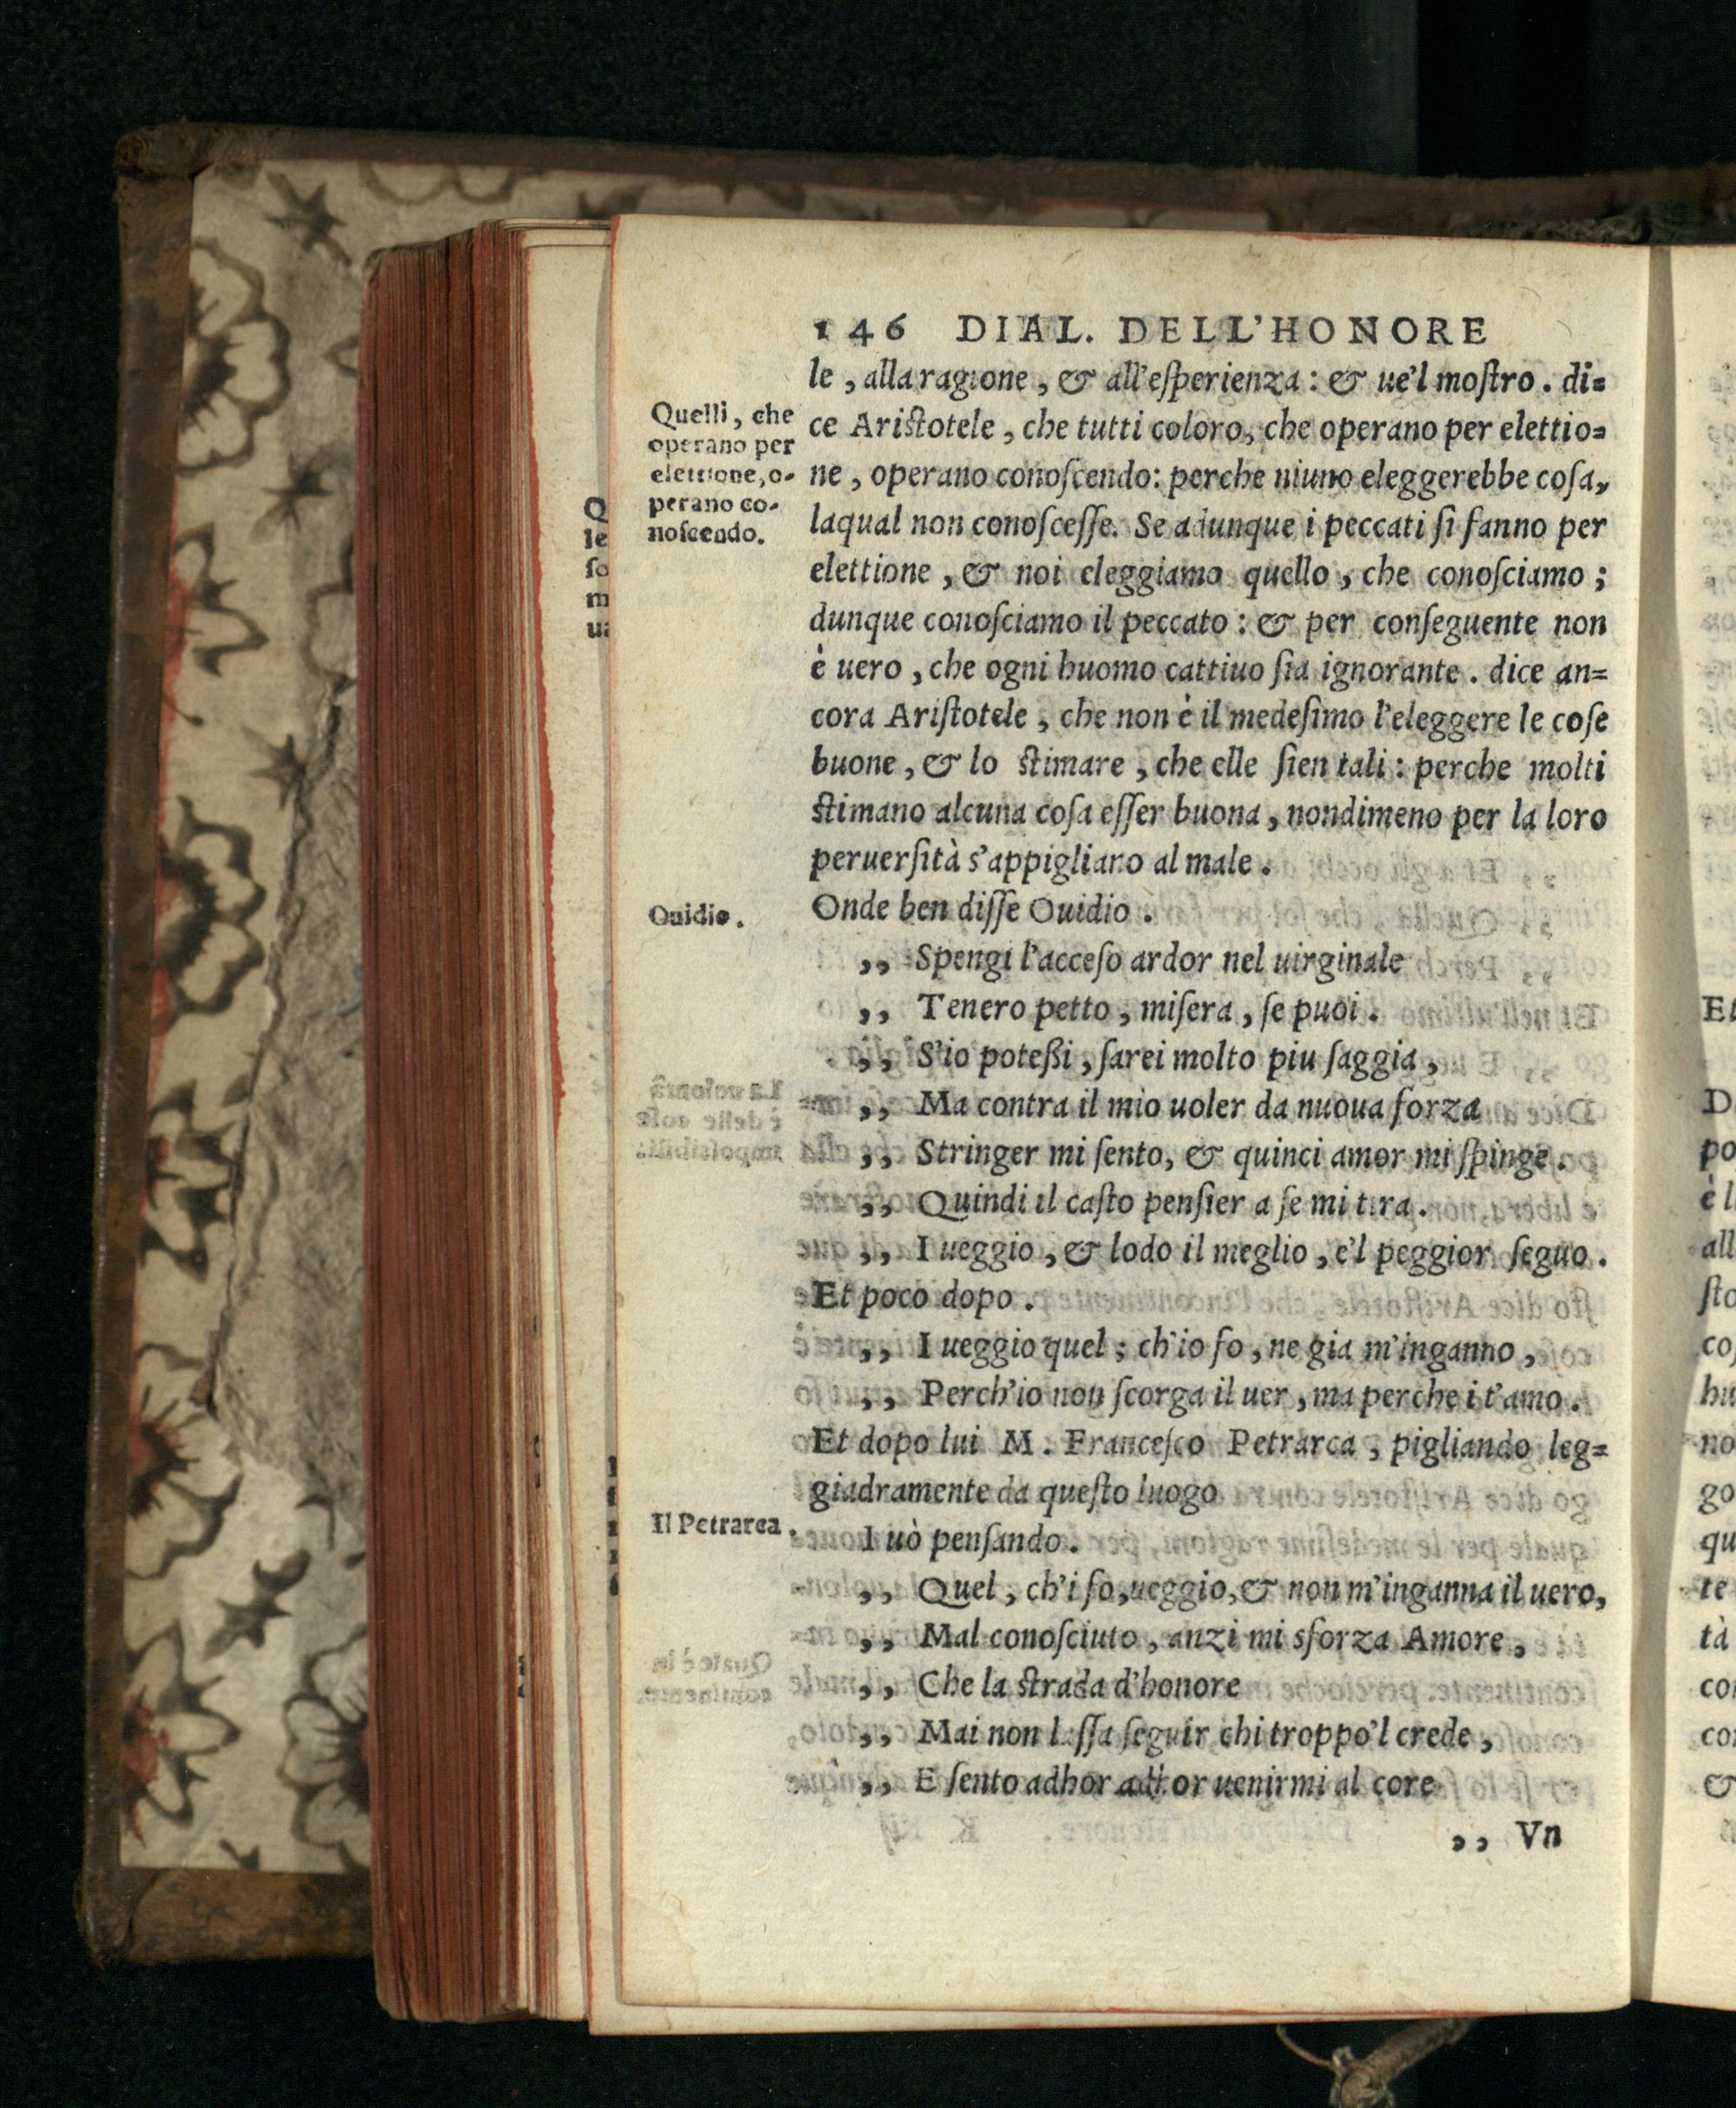 146 DIAL. DELL'HONORE
le, alla ragione, & all'eſperienza: & ue'l moſtro. di=
Quelli, che
operano per
elettione, o-
perano co-
noſcendo.
ce Ariſtotele, che tutti coloro, che operano per elettio=
ne, operano conoſcendo: perche niuno eleggerebbe coſa,
laqual non conoſceſſe. Se adunque i peccati ſi fanno per
elettione, & noi eleggiamo quello, che conoſciamo;
dunque conoſciamo il peccato: & per conſeguente non
è uero, che ogni huomo cattiuo ſia ignorante. dice an=
cora Ariſtotele, che non è il medeſimo l'eleggere le coſe
buone, & lo ſtimare, che elle ſien tali: perche molti
ſtimano alcuna coſa eſſer buona, nondimeno per la loro
peruerſità s'appigliano al male.
Ouidio.
Onde ben diſſe Ouidio.
,, Spengi l'acceſo ardor nel uirginale
,, Tenero petto, miſera, ſe puoi.
,, S'io poteßi, ſarei molto piu ſaggia,
,, Ma contra il mio uoler da nuoua forza
,, Stringer mi ſento, & quinci amor mi ſpinge.
,, Quindi il caſto penſier a ſe mi tira.
,, I ueggio, & lodo il meglio, e'l peggior ſeguo.
Et poco dopo.
,, I ueggio quel; ch'io fo, ne gia m'inganno,
,, Perch'io non ſcorga il uer, ma perche i t'amo.
Et dopo lui M. Franceſco Petrarca, pigliando leg=
giadramente da queſto luogo
Il Petrarca.
I uò penſando.
,, Quel, ch'i fo, ueggio, & non m'inganna il uero,
,, Mal conoſciuto, anzi mi sforza Amore,
,, Che la ſtrada d'honore
,, Mai non laſſa ſeguir chi troppo'l crede,
,, E ſento adhor adhor uenirmi al core
,, Vn
Q
le
ſo
m
Et
D
po
è l
all
ſto
coſ
hu
no
go
qu
te
tà
co
co
&